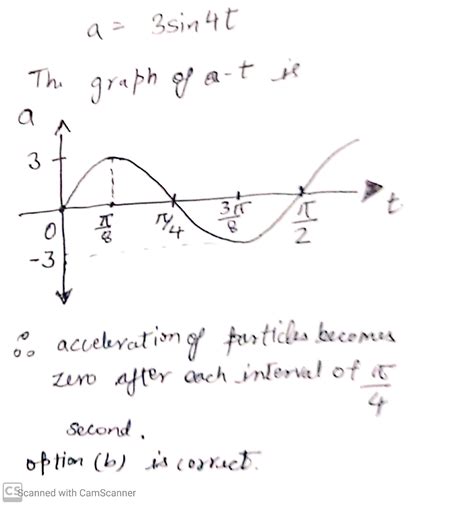 a = 3sin4t
The graph of a-t is
a
3
0
π/8
π/4
3π/8
π/2
t
-3
∴ acceleration of particles becomes
zero after each interval of π/4
second.
option (b) is correct.
CS Scanned with CamScanner